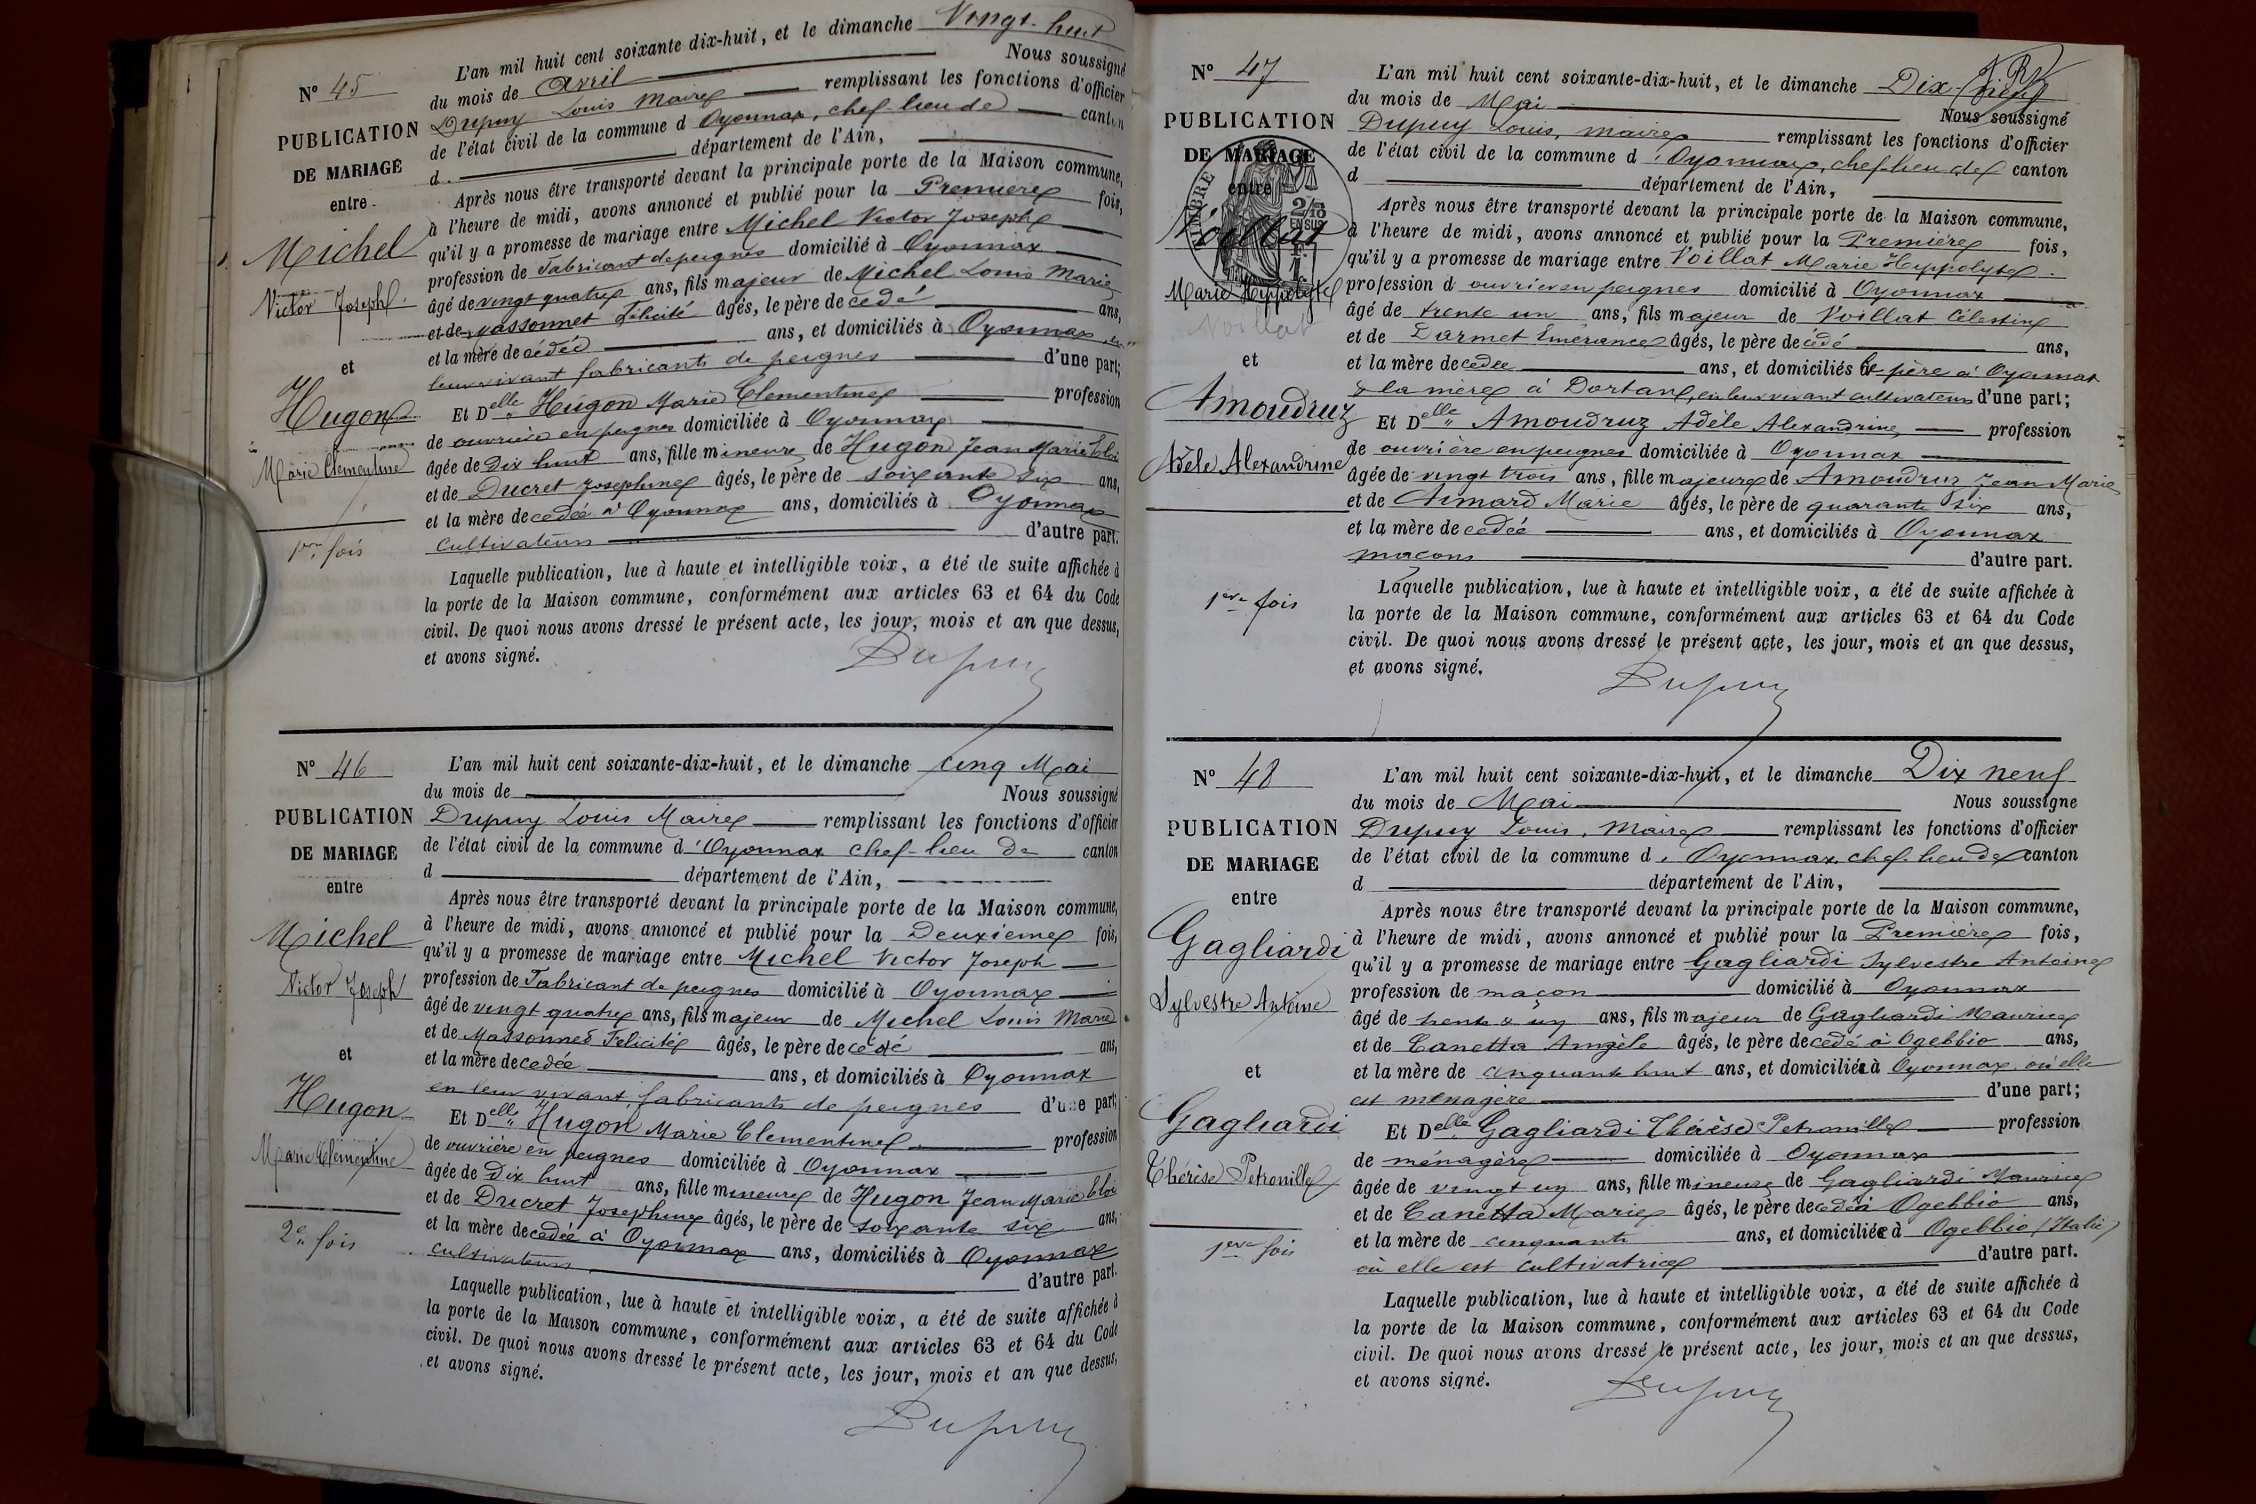 N° 45
PUBLICATION
DE MARIAGE
entre
Michel
Victor Joseph
et
Hugon
Marie Clementine
1ère fois
L'an mil huit cent soixante dix-huit, et le dimanche Vingt-huit
du mois de avril Nous soussigné
Dupuy Louis Maire remplissant les fonctions d'officier
de l'état civil de la commune d Oyonnax, chef-lieu de canton
d département de l'Ain,
Après nous être transporté devant la principale porte de la Maison commune,
à l'heure de midi, avons annoncé et publié pour la Première fois,
qu'il y a promesse de mariage entre Michel Victor Joseph
profession de Fabricant de peignes domicilié à Oyonnax
âgé de vingt quatre ans, fils majeur de Michel Louis Marie
et de Massonnet Félicité âgés, le père decedé ans,
et la mère decédée ans, et domiciliés à Oyonnax, en
leur vivant fabricants de peignes d'une part;
Et Delle Hugon Marie Clementine profession
de ouvrière en peignes domiciliée à Oyonnax
âgée de Dix huit ans, fille mineure de Hugon Jean Marie Eloi
et de Ducret Josephine âgés, le père de soixante six ans,
et la mère decedée à Oyonnax ans, domiciliés à Oyonnax
cultivateurs d'autre part.
Laquelle publication, lue à haute et intelligible voix, a été de suite affichée à
la porte de la Maison commune, conformément aux articles 63 et 64 du Code
civil. De quoi nous avons dressé le présent acte, les jour, mois et an que dessus,
et avons signé.
Dupuy
N° 46
PUBLICATION
DE MARIAGE
entre
Michel
Victor Joseph
et
Hugon
Marie Clementine
2e fois
L'an mil huit cent soixante-dix-huit, et le dimanche cinq Mai
du mois de Nous soussigné
Dupuy Louis Maire remplissant les fonctions d'officier
de l'état civil de la commune d'Oyonnax chef-lieu de canton
d département de l'Ain,
Après nous être transporté devant la principale porte de la Maison commune,
à l'heure de midi, avons annoncé et publié pour la Deuxième fois,
qu'il y a promesse de mariage entre Michel Victor Joseph
profession de Fabricant de peignes domicilié à Oyonnax
âgé de vingt quatre ans, fils majeur de Michel Louis Marie
et de Massonnet Felicité âgés, le père decedé ans,
et la mère decedée ans, et domiciliés à Oyonnax
en leur vivant fabricants de peignes d'une part;
Et Delle Hugon Marie Clementine profession
de ouvrière en peignes domiciliée à Oyonnax
âgée de Dix huit ans, fille mineure de Hugon Jean Marie Eloi
et de Ducret Josephine âgés, le père de soixante six ans,
et la mère decedée à Oyonnax ans, domiciliés à Oyonnax
cultivateurs d'autre part.
Laquelle publication, lue à haute et intelligible voix, a été de suite affichée à
la porte de la Maison commune, conformément aux articles 63 et 64 du Code
civil. De quoi nous avons dressé le présent acte, les jour, mois et an que dessus,
et avons signé.
Dupuy
N° 47
PUBLICATION
DE MARIAGE
entre
TIMBRE
2/10
EN SUS
Voillat
Marie Hyppolyte
Voillat
et
Amoudruz
Adèle Alexandrine
1ère fois
L'an mil huit cent soixante-dix-huit, et le dimanche Dix-neuf
du mois de Mai Nous soussigné
Dupuy Louis, maire remplissant les fonctions d'officier
de l'état civil de la commune d'Oyonnax, chef-lieu de canton
d département de l'Ain,
Après nous être transporté devant la principale porte de la Maison commune,
à l'heure de midi, avons annoncé et publié pour la Première fois,
qu'il y a promesse de mariage entre Voillat Marie Hyppolyte
profession d ouvrier en peignes domicilié à Oyonnax
âgé de trente un ans, fils majeur de Voillat Célestin
et de Darmet Emérance âgés, le père decédé ans,
et la mère decedée ans, et domiciliés le père à Oyonnax
& la mère à Dortan, en leur vivant cultivateurs d'une part;
Et Delle Amoudruz Adèle Alexandrine, profession
de ouvrière en peignes domiciliée à Oyonnax
âgée de vingt trois ans, fille majeure de Amoudruz Jean Marie
et de Aimard Marie âgés, le père de quarante six ans,
et la mère decedeé ans, et domiciliés à Oyonnax
maçons d'autre part.
Laquelle publication, lue à haute et intelligible voix, a été de suite affichée à
la porte de la Maison commune, conformément aux articles 63 et 64 du Code
civil. De quoi nous avons dressé le présent acte, les jour, mois et an que dessus,
et avons signé.
Dupuy
N° 48
PUBLICATION
DE MARIAGE
entre
Gagliardi
Sylvestre Antoine
et
Gagliardi
Thérèse Petronille
1ère fois
L'an mil huit cent soixante-dix-huit, et le dimanche Dix neuf
du mois de Mai Nous soussigné
Dupuy Louis, Maire remplissant les fonctions d'officier
de l'état civil de la commune d'Oyonnax, chef-lieu de canton
d département de l'Ain,
Après nous être transporté devant la principale porte de la Maison commune,
à l'heure de midi, avons annoncé et publié pour la Première fois,
qu'il y a promesse de mariage entre Gagliardi Sylvestre Antoine
profession de maçon domicilié à Oyonnax
âgé de trente & un ans, fils majeur de Gagliardi Maurice
et de Canetta Angèle âgés, le père decedé à Ogebbio ans,
et la mère de cinquante huit ans, et domiciliée à Oyonnax où elle
est ménagère d'une part;
Et Delle Gagliardi Thérèse Petronille profession
de ménagère domiciliée à Oyonnax
âgée de vingt un ans, fille mineure de Gagliardi Maurice
et de Canetta Marie âgés, le père decedé à Ogebbio ans,
et la mère de cinquante ans, et domiciliée à Ogebbio (Italie)
où elle est cultivatrice d'autre part.
Laquelle publication, lue à haute et intelligible voix, a été de suite affichée à
la porte de la Maison commune, conformément aux articles 63 et 64 du Code
civil. De quoi nous avons dressé le présent acte, les jour, mois et an que dessus,
et avons signé.
Dupuy